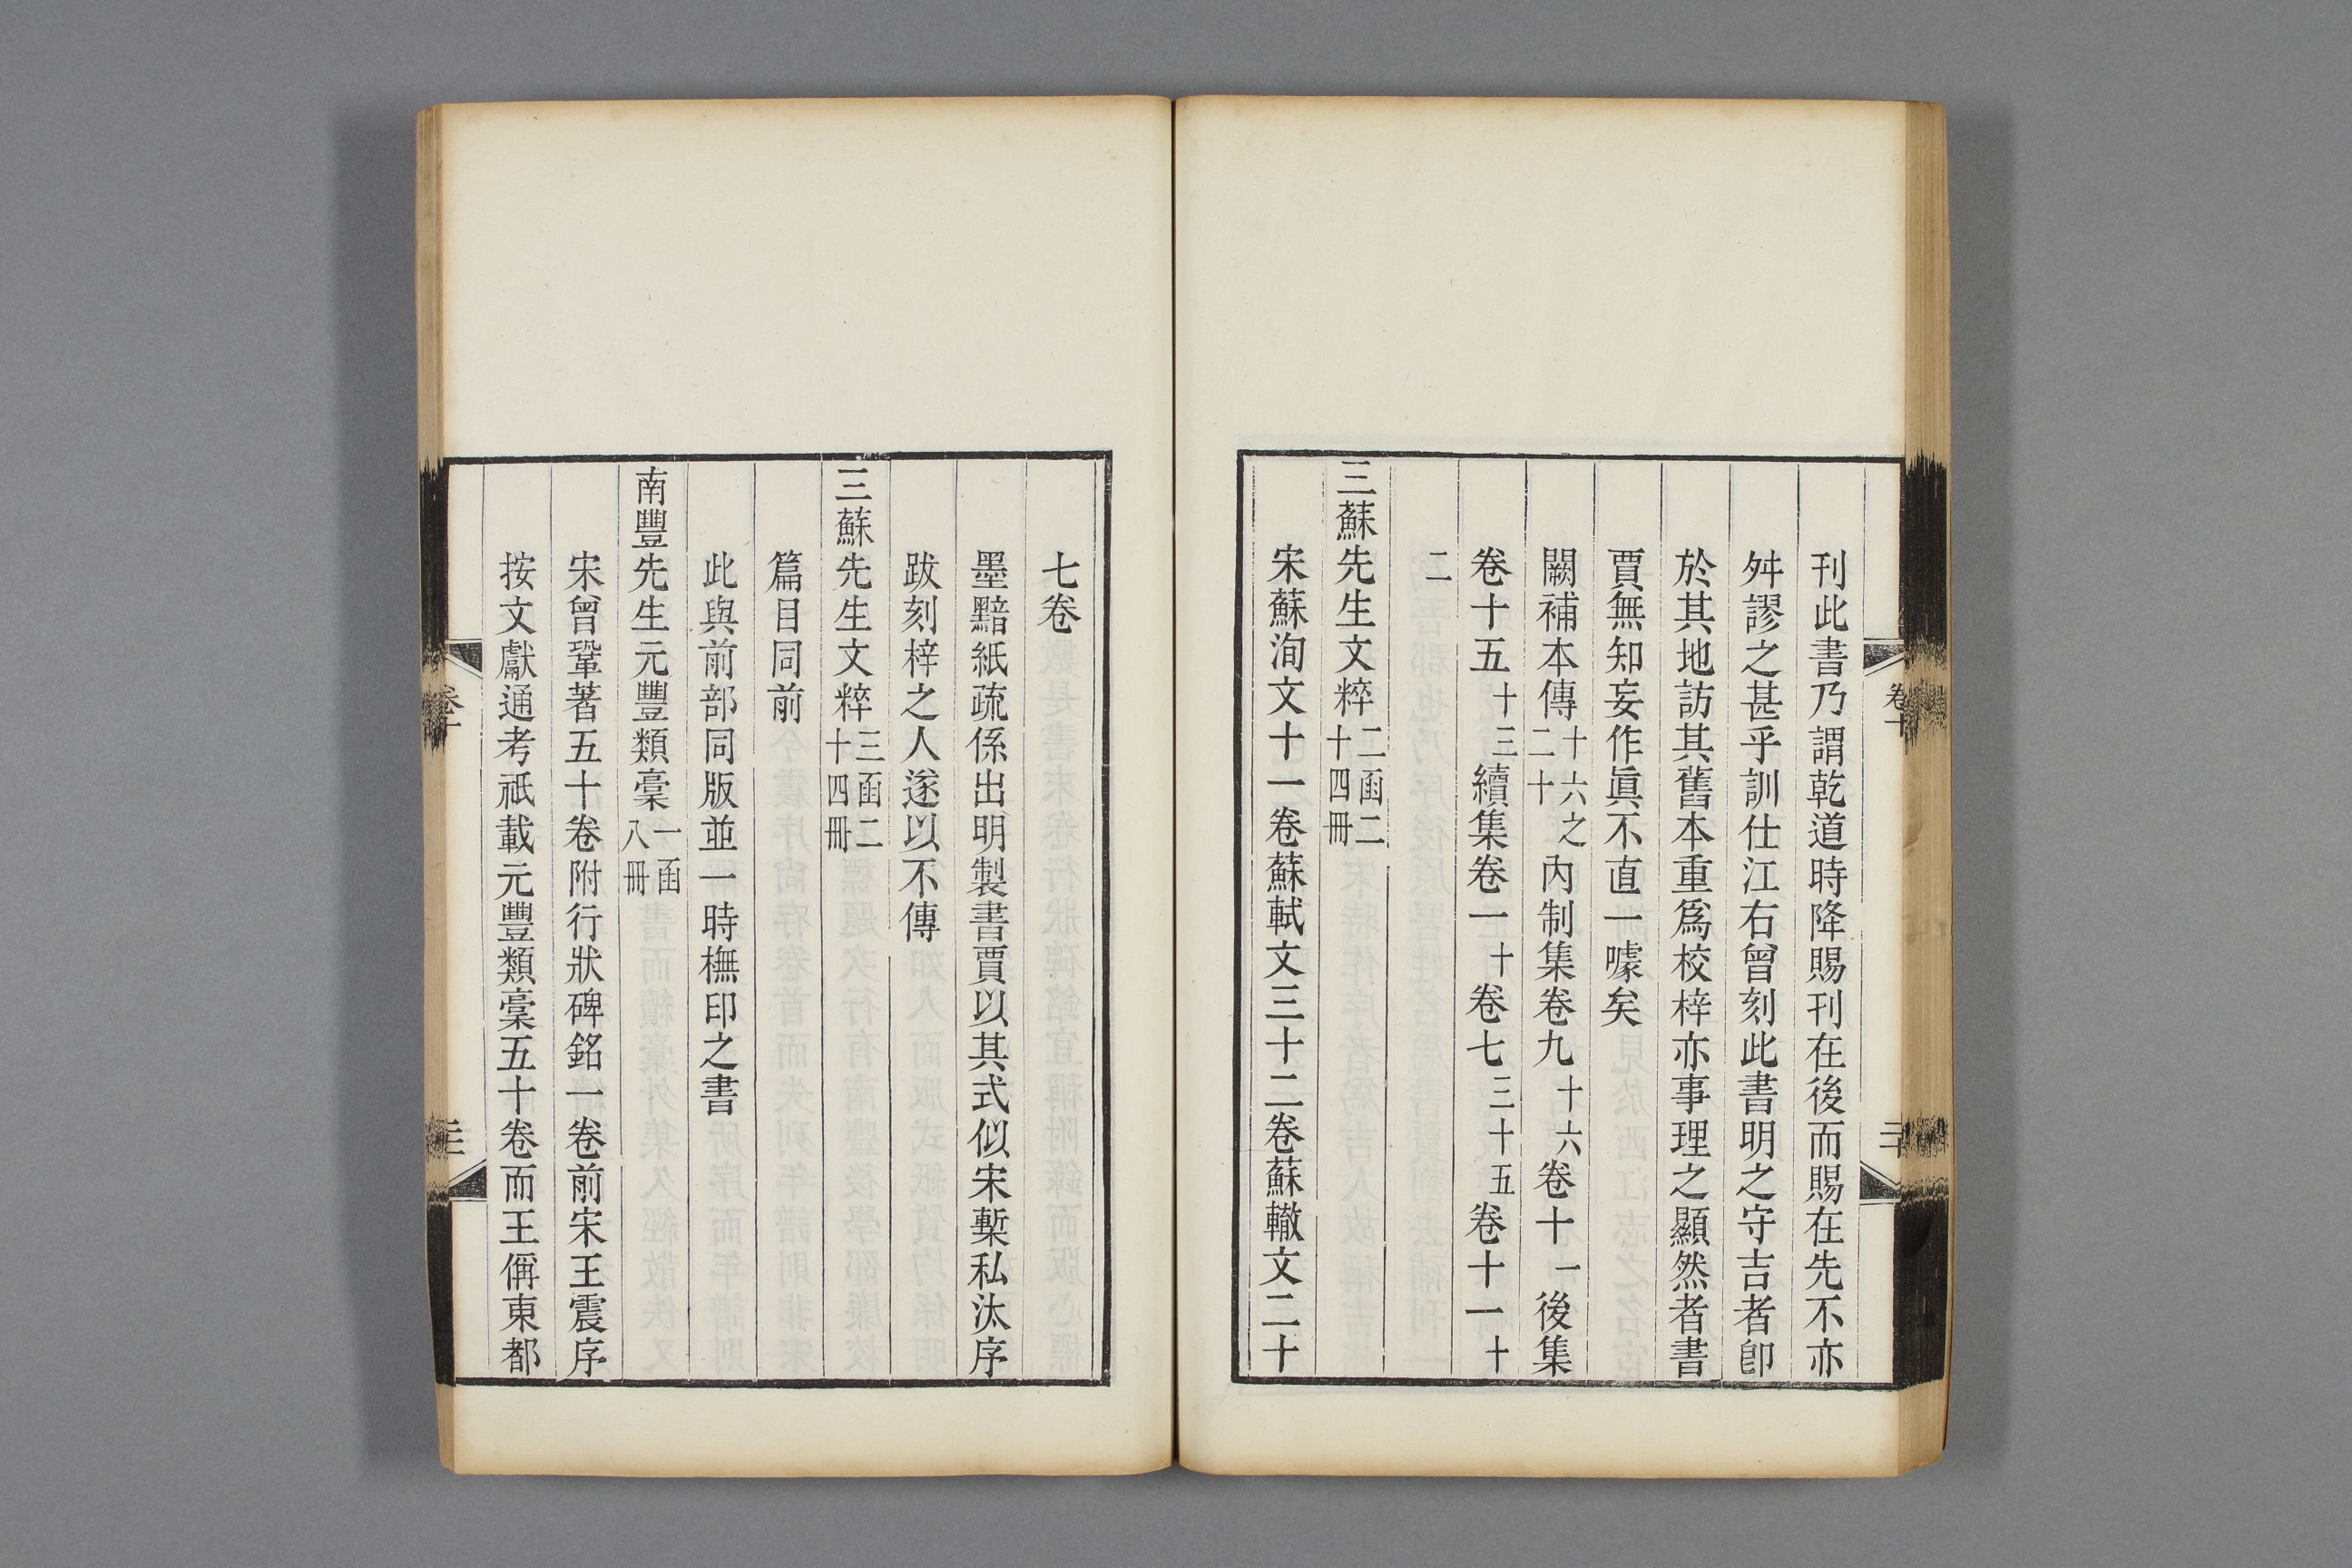 卷十
二十
刊此書乃謂乾道時降賜刊在後而賜在先不亦
舛謬之甚乎訓仕江右曾刻此書明之守吉者卽
於其地訪其舊本重爲校梓亦事理之顯然者書
賈無知妄作眞不直一噱矣
闕補本傳十六之二十內制集卷九十六卷十一後集
卷十五十三續集卷一十卷七三十五卷十一十
二
三蘇先生文粹二函二十四冊
宋蘇洵文十一卷蘇軾文三十二卷蘇轍文二十
七卷
墨黯紙疏係出明製書賈以其式似宋槧私汰序
跋刻梓之人遂以不傳
三蘇先生文粹三函二十四冊
篇目同前
此與前部同版並一時橅印之書
南豐先生元豐類稾一函八冊
宋曾鞏著五十卷附行狀碑銘一卷前宋王震序
按文獻通考祗載元豐類稾五十卷而王偁東都
卷十